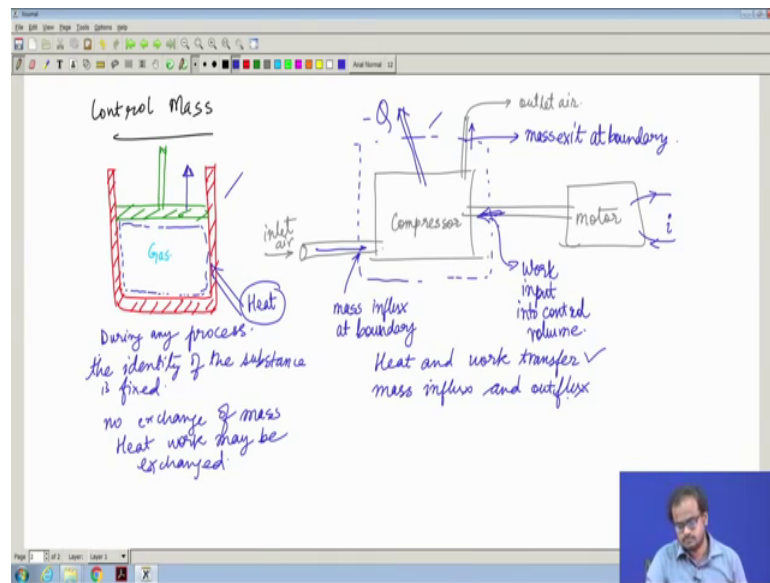 Xournal
File Edit View Page Tools Options Help
Arial Normal 12
Control Mass
Gas
Heat
During any process.
the identity of the substance
is fixed.
no exchange of mass
Heat work may be
exchanged.
-Q
outlet air
mass exit at boundary.
Compressor
motor
i
inlet
air
mass influx
at boundary
Work
input
into control
volume.
Heat and work transfer ✓
mass influx and outflux
Page 2 of 2 Layer: Layer 1